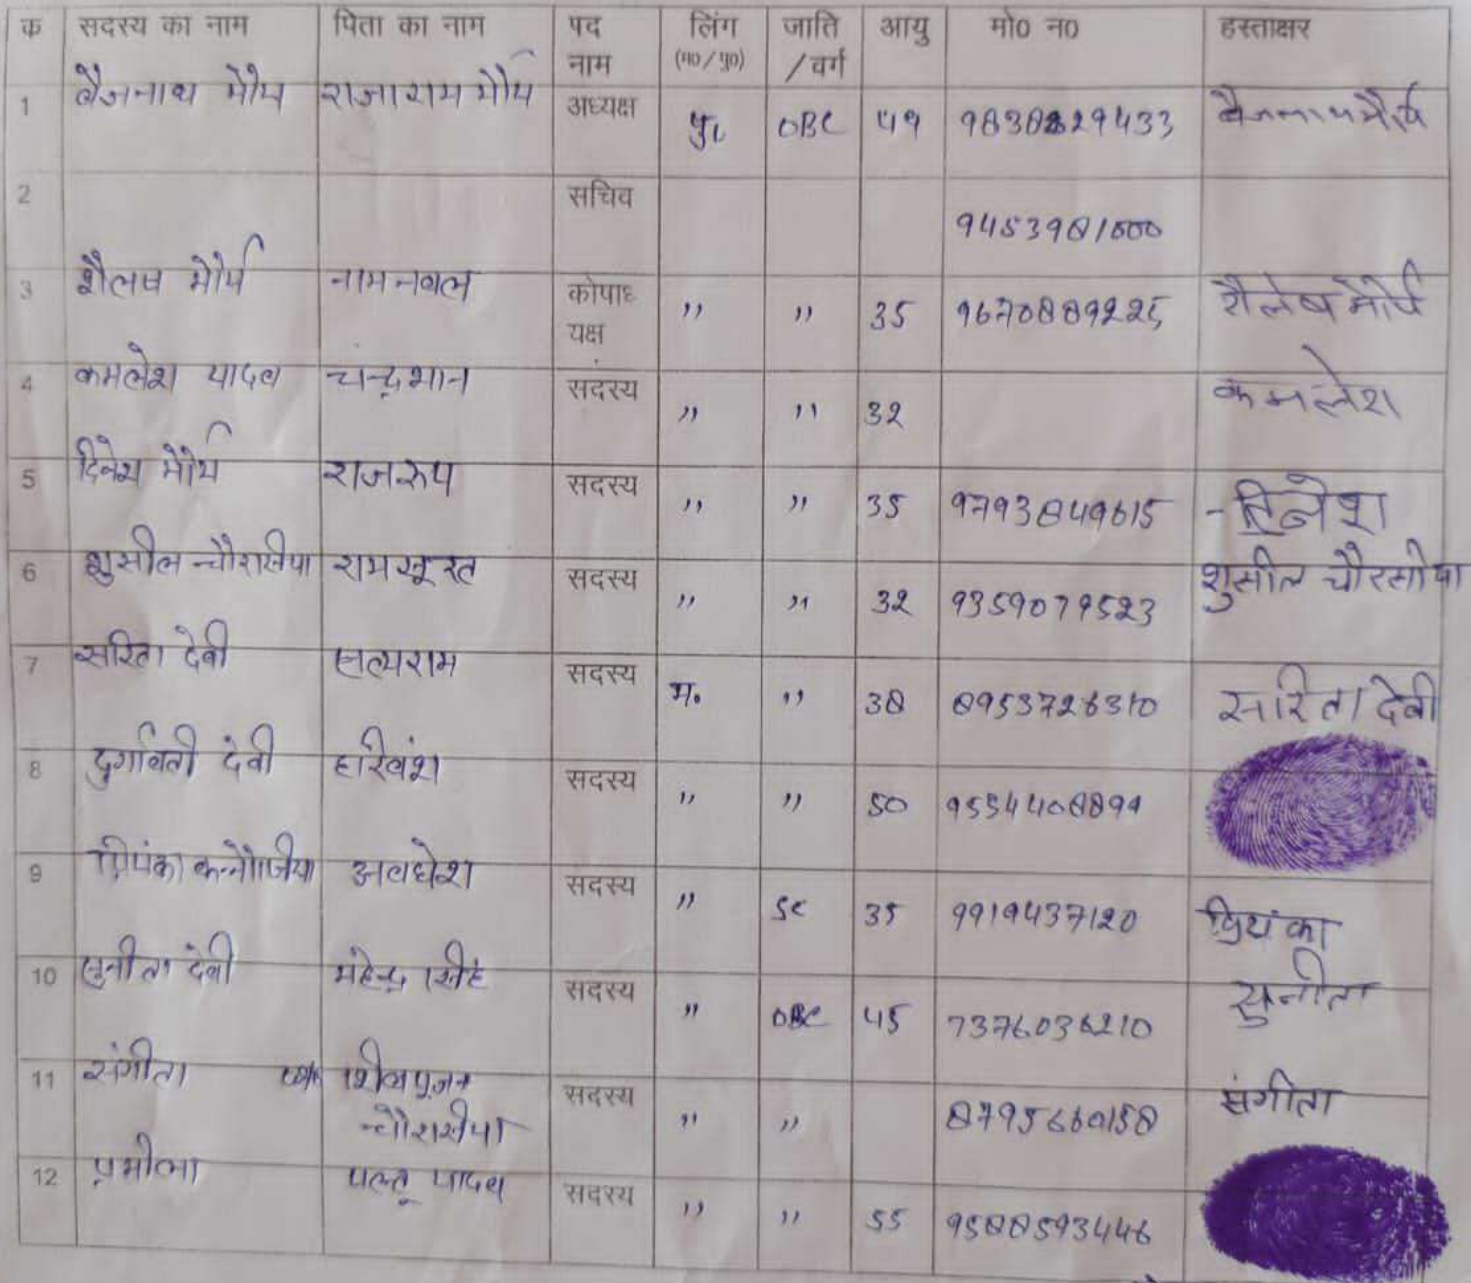 क सदस्य का नाम पिता का नाम पद नाम लिंग (म0/पु0) जाति /वर्ग आयु मो0 न0 हस्ताक्षर
1 बैजनाथ मौर्य राजाराम मौर्य अध्यक्ष पु. OBC 49 बैजनाथ मौर्य
2 सचिव 9453981000
3 शैलेष मौर्य नवल कोपाध यक्ष " " 35 9670889225 शैलेष मौर्य
4 कमलेश यादव चन्द्रभान सदस्य " " 32 कमलेश
5 दिनेश मौर्य राजरूप सदस्य " " 35 9793849615 दिनेश
6 शुसील चौरासीया रामसूरत सदस्य " " 32 9359079523 शुसील चौरसीया
7 सरिता देवी सत्यराम सदस्य म. " 38 8953726310 सरिता देवी
8 दुर्गावती देवी हरिवंश सदस्य " " 50
9 प्रियंका कन्नौजिया अवधेश सदस्य " SC 35 9919437120 प्रियंका
10 सुनीता देवी महेन्द्र सदस्य " OBC 45 7376036210 सुनीता
11 संगीता शिवपूजन चौरासीया सदस्य " " 8795660158 संगीता
12 प्रमीला पल्टू यादव सदस्य " " 55 9588593446